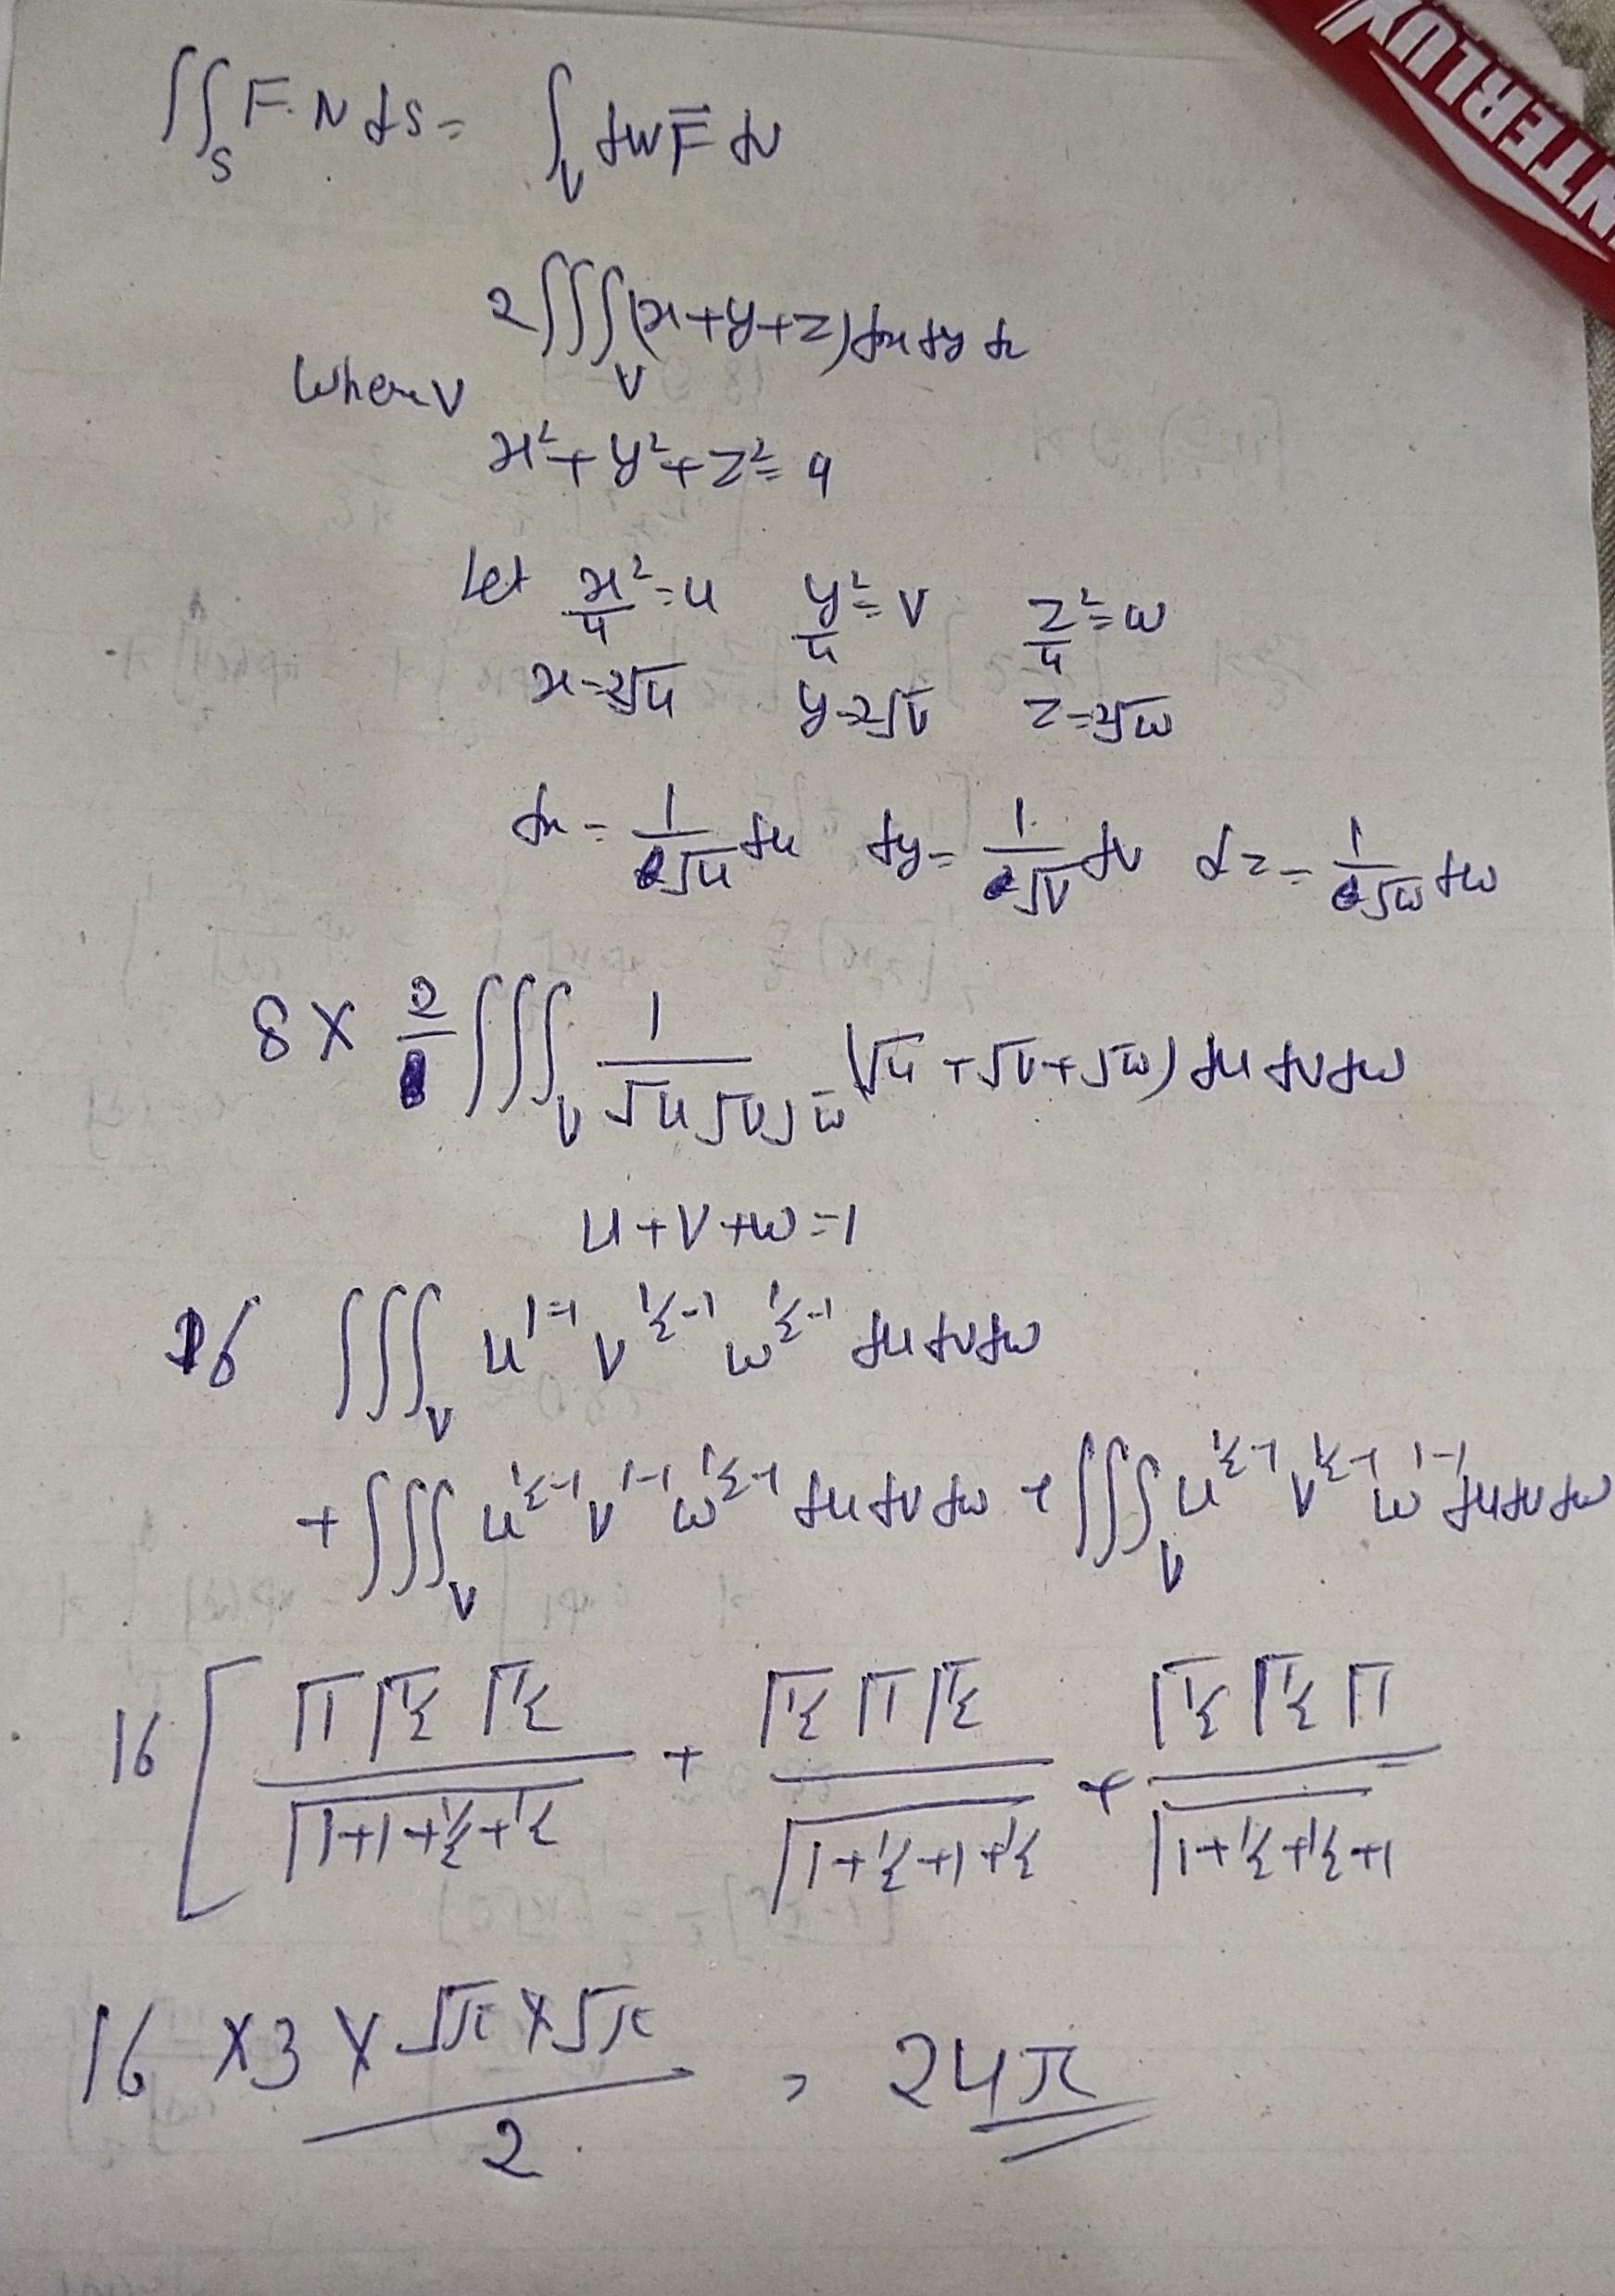 NTERLUX
∬_S F. N ds = ∫_V div F̄ dv
2∭_V (x+y+z) dx dy dz
Where V
x²+y²+z²=4
Let x²/4=u y²/4=v z²/4=w
x=2√u y=2√v z=2√w
dx = 1/√u du dy = 1/√v dv dz = 1/√w dw
8 × 2 ∭_V 1/(√u √v √w) (√u + √v + √w) du dv dw
u+v+w=1
16 ∭_V u^(1-1) v^(1/2-1) w^(1/2-1) du dv dw
+ ∭_V u^(1/2-1) v^(1-1) w^(1/2-1) du dv dw + ∭_V u^(1/2-1) v^(1/2-1) w^(1-1) du dv dw
16 [ Γ1 Γ1/2 Γ1/2 / Γ1+1+1/2+1/2 + Γ1/2 Γ1 Γ1/2 / Γ1+1/2+1+1/2 + Γ1/2 Γ1/2 Γ1 / Γ1+1/2+1/2+1
16 ×3 × √π × √π / 2 = 24π